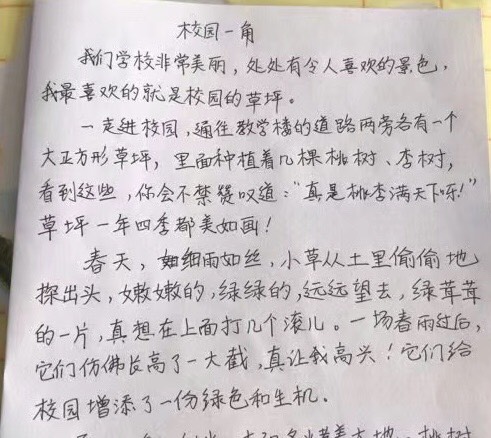 校园一角
我们学校非常美丽，处处有令人喜欢的景色，
我最喜欢的就是校园的草坪。
一走进校园，通往教学楼的道路两旁各有一个
大正方形草坪，里面种植着几棵桃树、李树，
看到这些，你会不禁赞叹道：“真是桃李满天下呀！”
草坪一年四季都美如画！
春天，细雨如丝，小草从土里偷偷地
探出头，嫩嫩的，绿绿的，远远望去，绿茸茸
的一片，真想在上面打几个滚儿。一场春雨过后，
它们仿佛长高了一大截，真让我高兴！它们给
校园增添了一份绿色和生机。